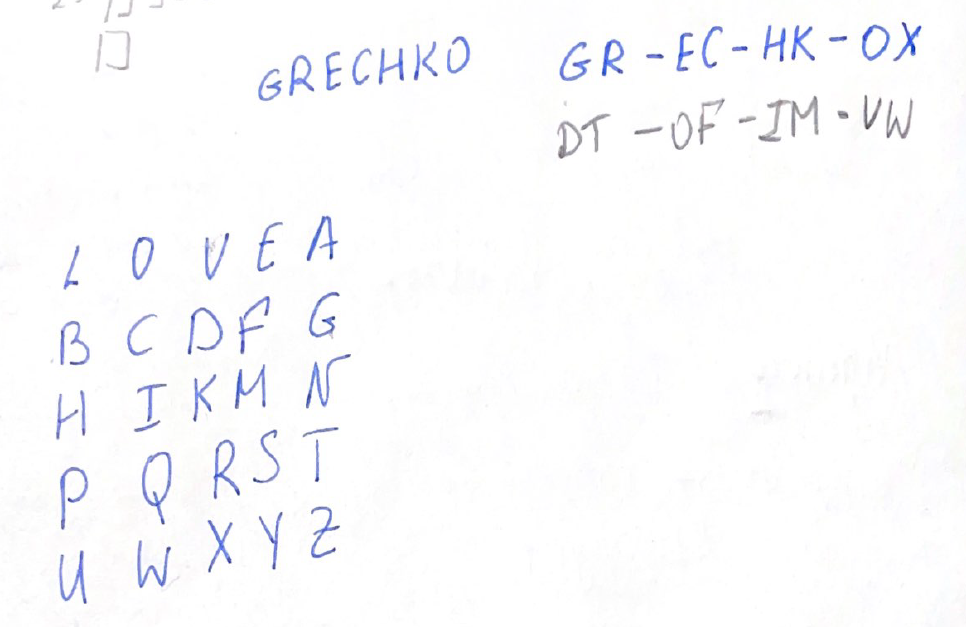 GRECHKO GR-EC-HK-OX
DT-OF-IM-VW
L O V E A
B C D F G
H I K M N
P Q R S T
U W X Y Z